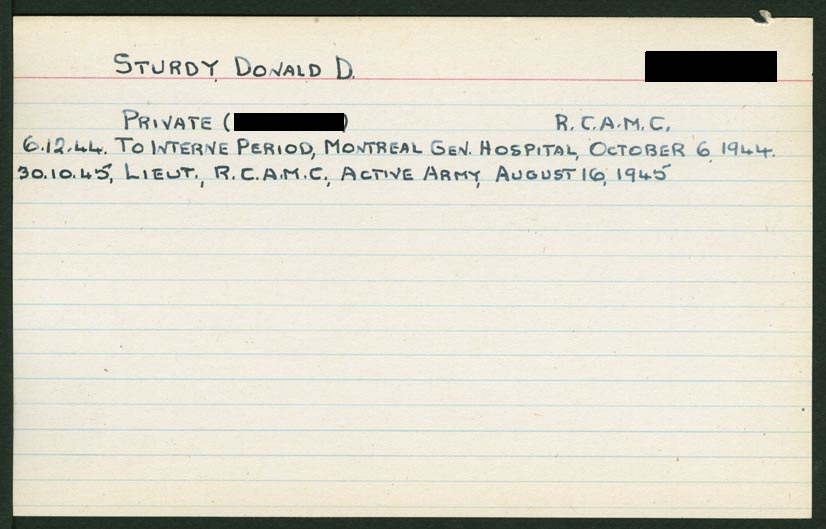 STURDY, DONALD D.
PRIVATE ( ) R.C.A.M.C.
6.12.44. TO INTERNE PERIOD, MONTREAL GEN. HOSPITAL, OCTOBER 6, 1944.
30.10.45, LIEUT., R.C.A.M.C., ACTIVE ARMY, AUGUST 16, 1945